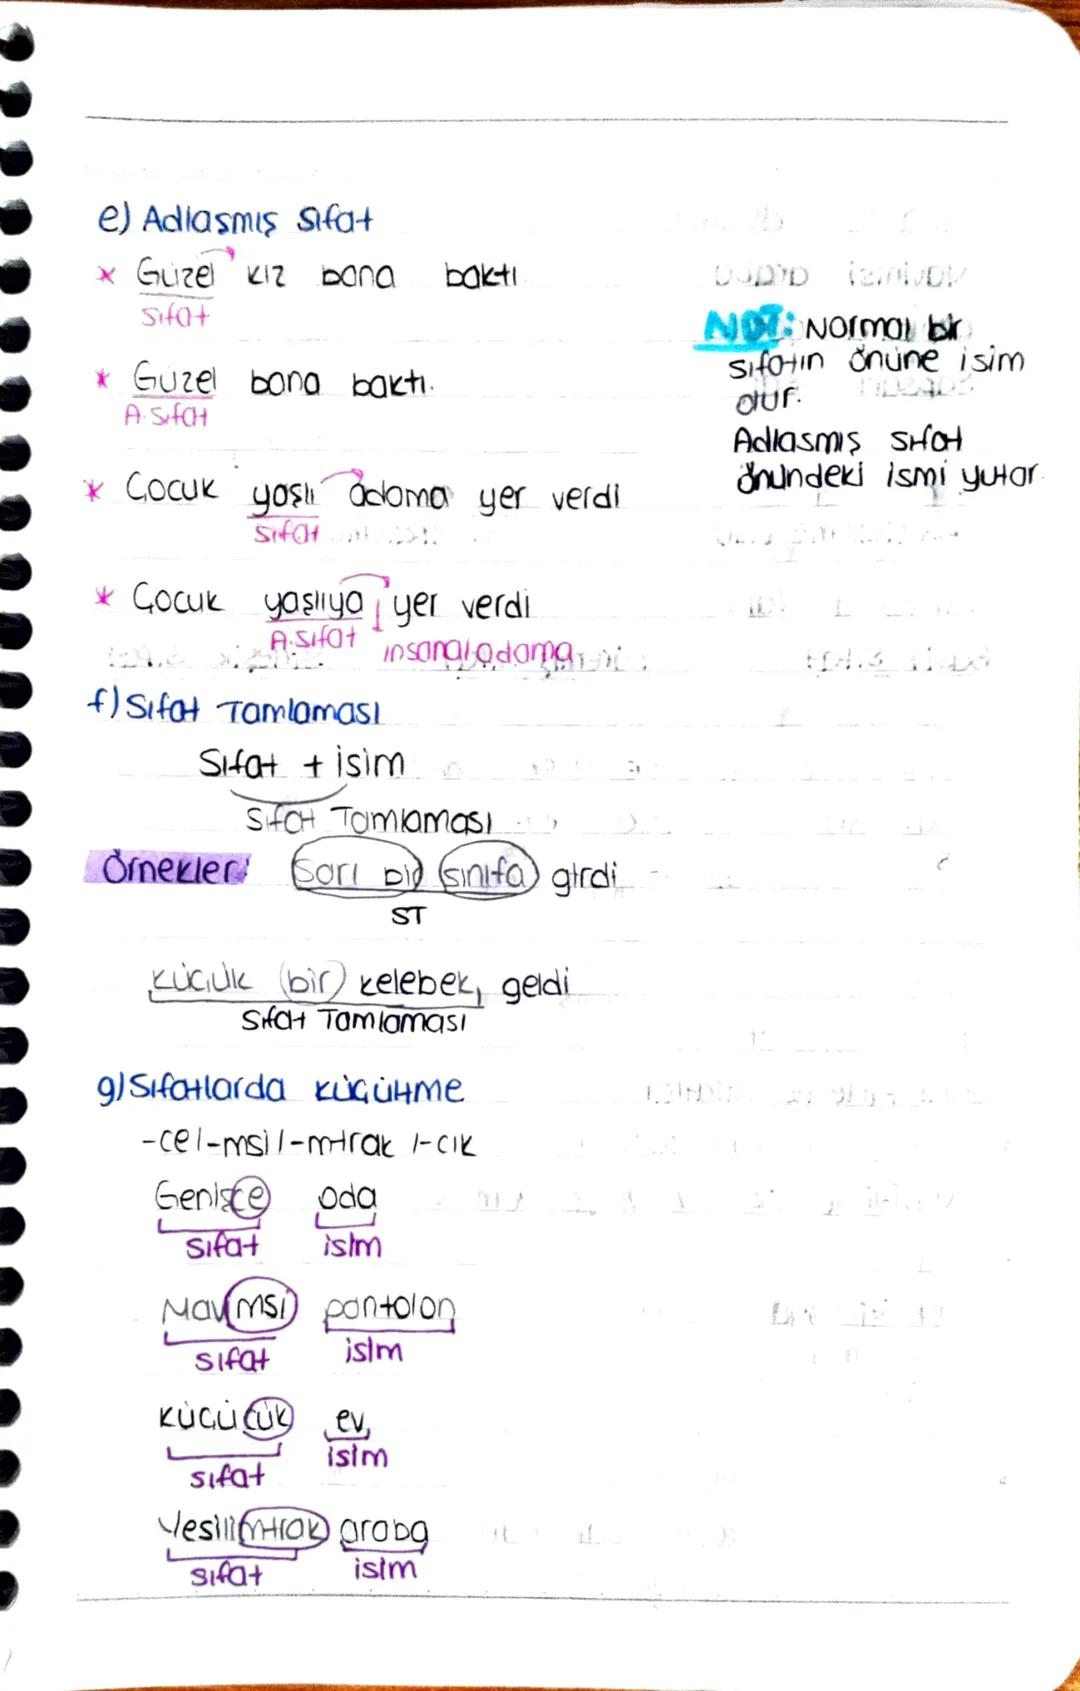 e) Adlaşmış Sıfat
* Güzel kız bana baktı
sıfat
* Güzel bana baktı.
A. Sıfat
NOT: Normal bir
sıfatın önüne isim
olur.
Adlaşmış sıfat
önündeki ismi yutar.
* Çocuk yaşlı adama yer verdi
sıfat
* Çocuk yaşlıya yer verdi
A. Sıfat insana/adama
f) Sıfat Tamlaması
Sıfat + isim
Sıfat Tamlaması
Örnekler: Sarı bir sınıfa girdi
ST
küçük (bir) kelebek, geldi
Sıfat Tamlaması
g) Sıfatlarda küçültme
-ce/-msi/-mtrak /-cık
Genişçe oda
sıfat isim
Mavimsi pantolon
sıfat isim
küçücük ev
sıfat isim
Yeşilimtrak araba
sıfat isim